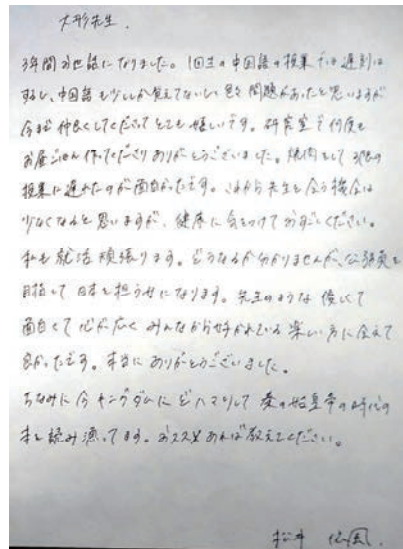 大形先生.
3年間お世話になりました。1回生の中国語の授業では遅刻は
するし、中国語も少ししか覚えてないし 色々問題があったと思いますが
今まで仲良くしてくださってとても嬉しいです。研究室で何度も
お昼ごはん作ってくださりありがとうございました。焼肉をして3限の
授業に遅れたのが面白かったです。これから先生と会う機会は
少なくなると思いますが、健康に気をつけておすごしください。
私も就活頑張ります。どうなるか分かりませんが、公務員を
目指して日本を担う女になります。先生のような優しくて
面白くて心が広くみんなから好かれている楽しい方に会えて
良かったです。本当にありがとうございました。
ちなみに今キングダムにどハマりして秦の始皇帝の時代の
本を読み漁ってます。おススメあれば教えてください。
松井